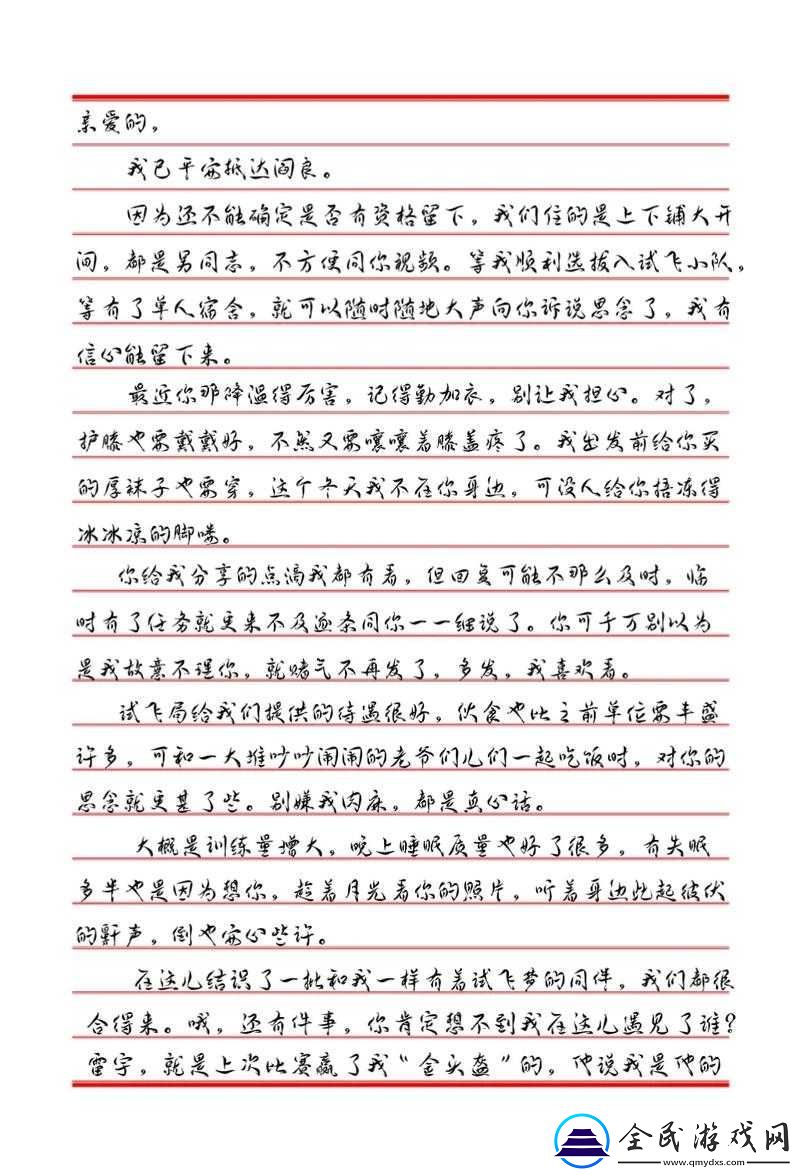 亲爱的，
我已平安抵达阎良。
因为还不能确定是否有资格留下，我们住的是上下铺大开
间，都是男同志，不方便同你视频。等我顺利选拔入试飞小队，
等有了单人宿舍，就可以随时随地大声向你诉说思念了，我有
信心能留下来。
最近你那降温得厉害，记得勤加衣，别让我担心。对了，
护膝也要戴戴好，不然又要嚷嚷着膝盖疼了。我出发前给你买
的厚袜子也要穿，这个冬天我不在你身边，可没人给你捂冻得
冰冰凉的脚喽。
你给我分享的点滴我都有看，但回复可能不那么及时，临
时有了任务就更来不及逐条同你一一细说了。你可千万别以为
是我故意不理你，就赌气不再发了，多发，我喜欢看。
试飞局给我们提供的待遇很好，伙食也比之前单位要丰盛
许多，可和一大堆吵吵闹闹的老爷们儿们一起吃饭时，对你的
思念就更甚了些。别嫌我肉麻，都是真心话。
大概是训练量增大，晚上睡眠质量也好了很多，有失眠
多半也是因为想你，趁着月光看你的照片，听着身边此起彼伏
的鼾声，倒也安心些许。
在这儿结识了一批和我一样有着试飞梦的同伴，我们都很
合得来。哦，还有件事，你肯定想不到我在这儿遇见了谁？
雷宇，就是上次比赛赢了我“金头盔”的，他说我是他的
全民游戏网
www.qmydxs.com